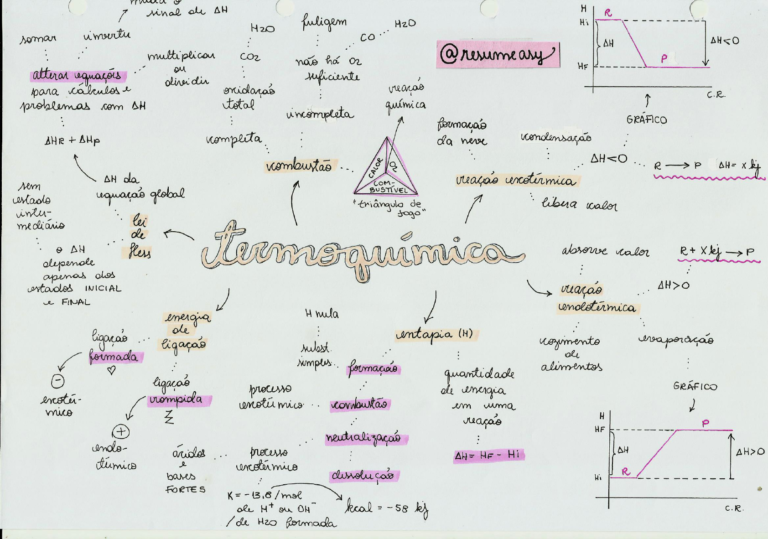 sinal de ΔH
somar
inverter
multiplicar
ou
dividir
alterar equações
para cálculos e
problemas com ΔH
ΔHR + ΔHP
ΔH da
equação global
lei
de
Hess
sem
estado
inter-
mediário
o ΔH
depende
apenas dos
estados INICIAL
e FINAL
H2O
CO2
oxidação
total
completa
fuligem
CO
H2O
não há O2
suficiente
incompleta
combustão
reação
química
CALOR
O2
COM-
BUSTÍVEL
"triângulo de
fogo"
@resumeasy
formação
da neve
condensação
reação exotérmica
libera calor
ΔH<0
GRÁFICO
R → P ΔH = X kj
H
Hi
R
ΔH
P
HF
ΔH<0
C.R.
termoquímica
absorve calor
reação
endotérmica
R + X kj → P
ΔH>0
cozimento
de
alimentos
evaporação
GRÁFICO
H
HF
P
ΔH
ΔH>0
Hi
R
C.R.
energia
de
ligação
ligação
formada
♡
−
exotér-
mico
ligação
rompida
+
endo-
térmico
entalpia (H)
quantidade
de energia
em uma
reação
ΔH = HF - Hi
H nula
subst.
simples
formação
processo
exotérmico
combustão
neutralização
ácidos
e
bases
FORTES
processo
exotérmico
dissolução
K = -13,8/mol
de H⁺ ou OH⁻
/de H2O formada
kcal = -58 kj